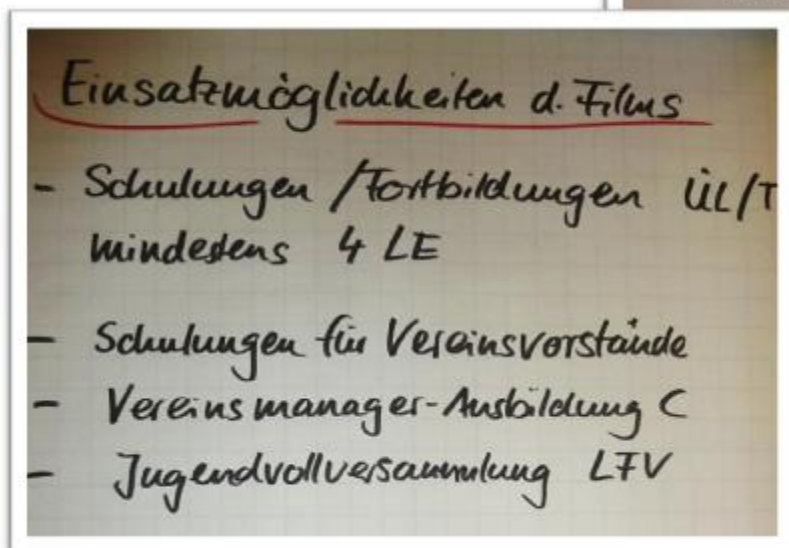 Einsatzmöglichkeiten d. Films
- Schulungen / Fortbildungen ÜL/T
mindestens 4 LE
- Schulungen für Vereinsvorstände
- Vereinsmanager-Ausbildung C
- Jugendvollversammlung LFV